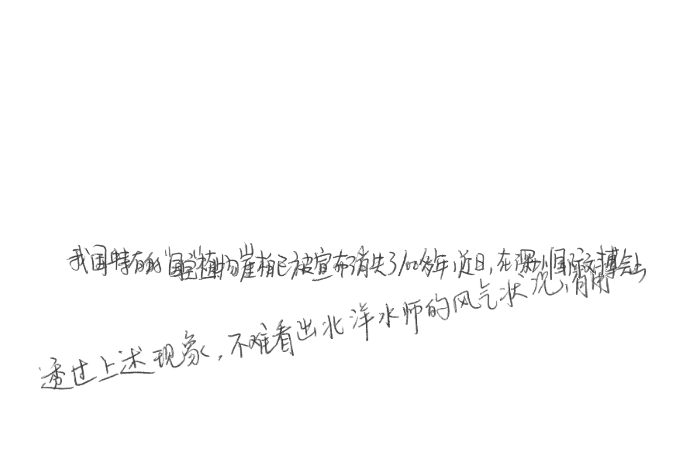 我国特有的国宝植物崖柏已被宣布消失了100多年,近日,在深圳国际文博会上
透过上述现象,不难看出北洋水师的风气状况,清朝